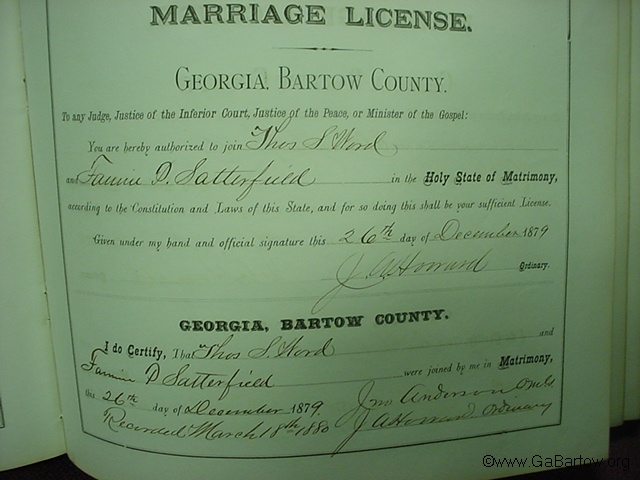 MARRIAGE LICENSE.
GEORGIA, BARTOW COUNTY.
To any Judge, Justice of the Inferior Court, Justice of the Peace, or Minister of the Gospel:
You are hereby authorized to join Thos S Word
and Fannie D. Satterfield in the Holy State of Matrimony,
according to the Constitution and Laws of this State, and for so doing this shall be your sufficient License.
Given under my hand and official signature this 26th day of December 1879
J A Howard Ordinary.
GEORGIA, BARTOW COUNTY.
I do Certify, That Thos S. Word and
Fannie D Satterfield were joined by me in Matrimony,
this 26th day of December 1879. Jno Anderson
Recorded March 18th 1880 J A Howard Ordinary
©www.GaBartow.org